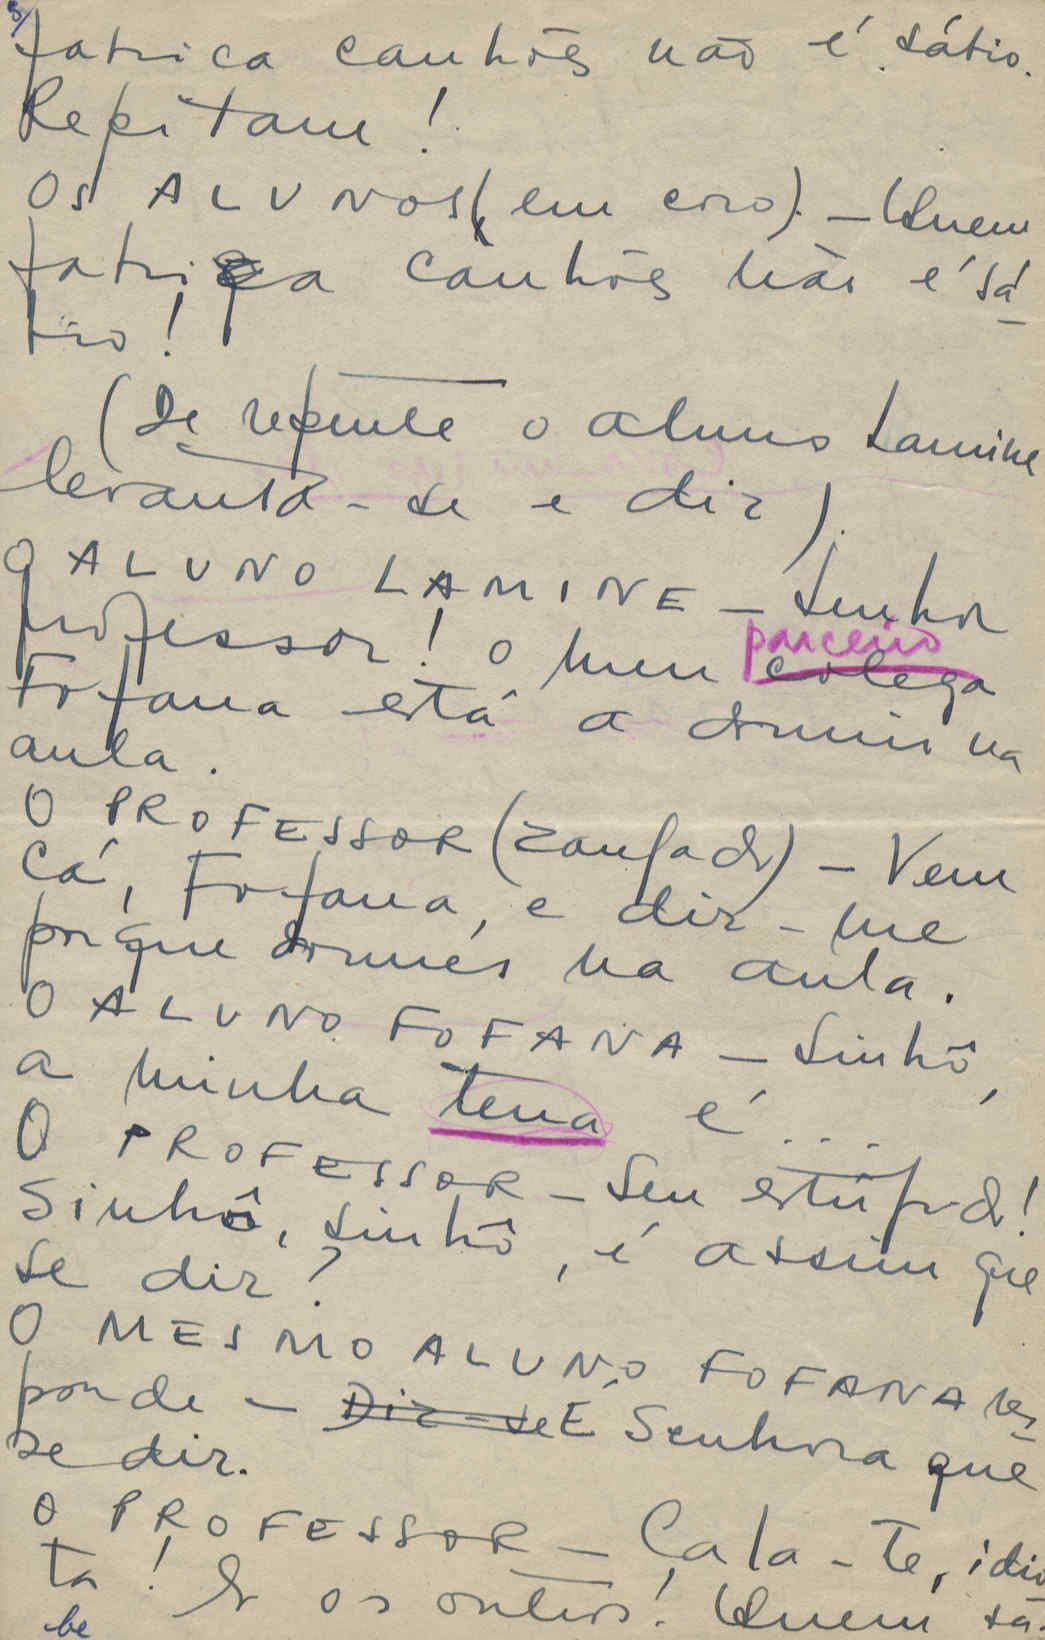 5/
fabrica canhões não é sábio.
Repitam!
OS ALUNOS (em coro). — Quem
fabrica canhões não é sá-
bio!
(De repente o aluno Lamine
levanta-se e diz).
O ALUNO LAMINE — Senhor
parceiro
professor! O meu colega
Fofana está a dormir na
aula.
O PROFESSOR (zangado) — Vem
cá, Fofana, e diz-me
porque dormes na aula.
O ALUNO FOFANA — Sinhô,
a minha terra é...
O PROFESSOR — Seu estúpido!
Sinhô, sinhô, é assim que
se diz?
O MESMO ALUNO FOFANA res-
ponde — Diz-se É Senhora que
se diz.
O PROFESSOR — Cala-te, idio-
ta! E os outros! Quem sa-
be